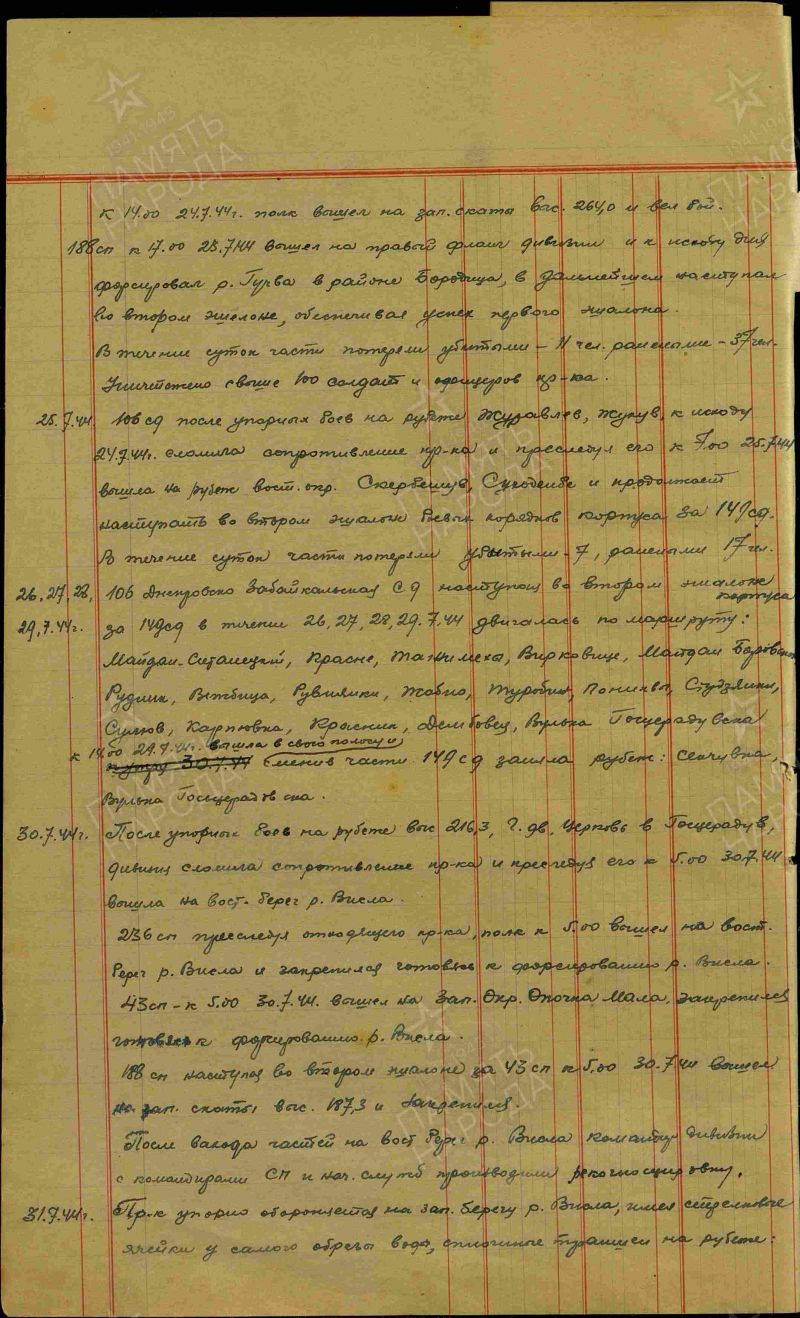 к 14.00 24.7.44г. полк вышел на зап. скаты выс. 264,0 и вел бой.
188 сп к 17.00 23.7.44 вышел на правый фланг дивизии и к исходу дня
форсировал р. Гучва в районе Бородица, в дальнейшем наступал
во втором эшелоне, обеспечивая успех первого эшалона.
В течение суток части потеряли убитыми – 11 чел. ранеными – 37 чел.
Уничтожено свыше 100 солдат и офицеров пр-ка.
25.7.44. 106 сд после упорных боев на рубеже Журавлев, Жукув, к исходу
24.7.44г. сломила сопротивление пр-ка и преследуя его к 7.00 25.7.44
вышла на рубеж вост. окр. Скербешув, Суходембе и продолжает
наступать во втором эшалоне боевых порядков корпуса за 149 сд.
В течение суток части потеряли убитыми – 7, ранеными 17 чел.
26, 27, 28, 106 Днепровско Забайкальская СД наступая во втором эшалоне корпуса
29.7.44г. за 149 сд в течении 26, 27, 28, 29.7.44 двигалась по маршруту:
Майдан-Ситанецкий, Красне, Вирковице, Майдан
Рудник, Вежбица, Жабно, Туробин, Студзянки,
Сулюв, Карпювка, Красник, Вулька Госцерадувска
к 19.00 29.7.44г. вышла в свою полосу и
к утру 30.7.44 сменив части 149 сд заняла рубеж: Сенчувка,
Вулька Госцерадовска.
30.7.44г. После упорных боев на рубеже выс 216,3, Г. дв, Церковь в Госцерадув,
дивизия сломила сопротивление пр-ка и преследуя его к 5.00 30.7.44
вышла на вост. берег р. Висла.
236 сп преследуя отходящего пр-ка, полк к 5.00 вышел на вост.
берег р. Висла и закрепился готовясь к форсированию р. Висла.
43 сп – к 5.00 30.7.44. вышел на зап. окр. Опочка Мала, закрепился
готовясь к форсированию р. Висла.
188 сп наступая во втором эшалоне за 43 сп к 5.00 30.7.44 вышел
на зап. скаты выс. 187,3 и закрепился.
После выхода частей на вост берег р. Висла командир дивизии
с командирами СП и нач. служб производили рекогносцировку.
31.7.44г. Пр-к упорно обороняется на зап. берегу р. Висла, имея стрелковые
ячейки у самого обреза воды, сплошные траншеи на рубеже:
ПАМЯТЬ НАРОДА
1941-1945